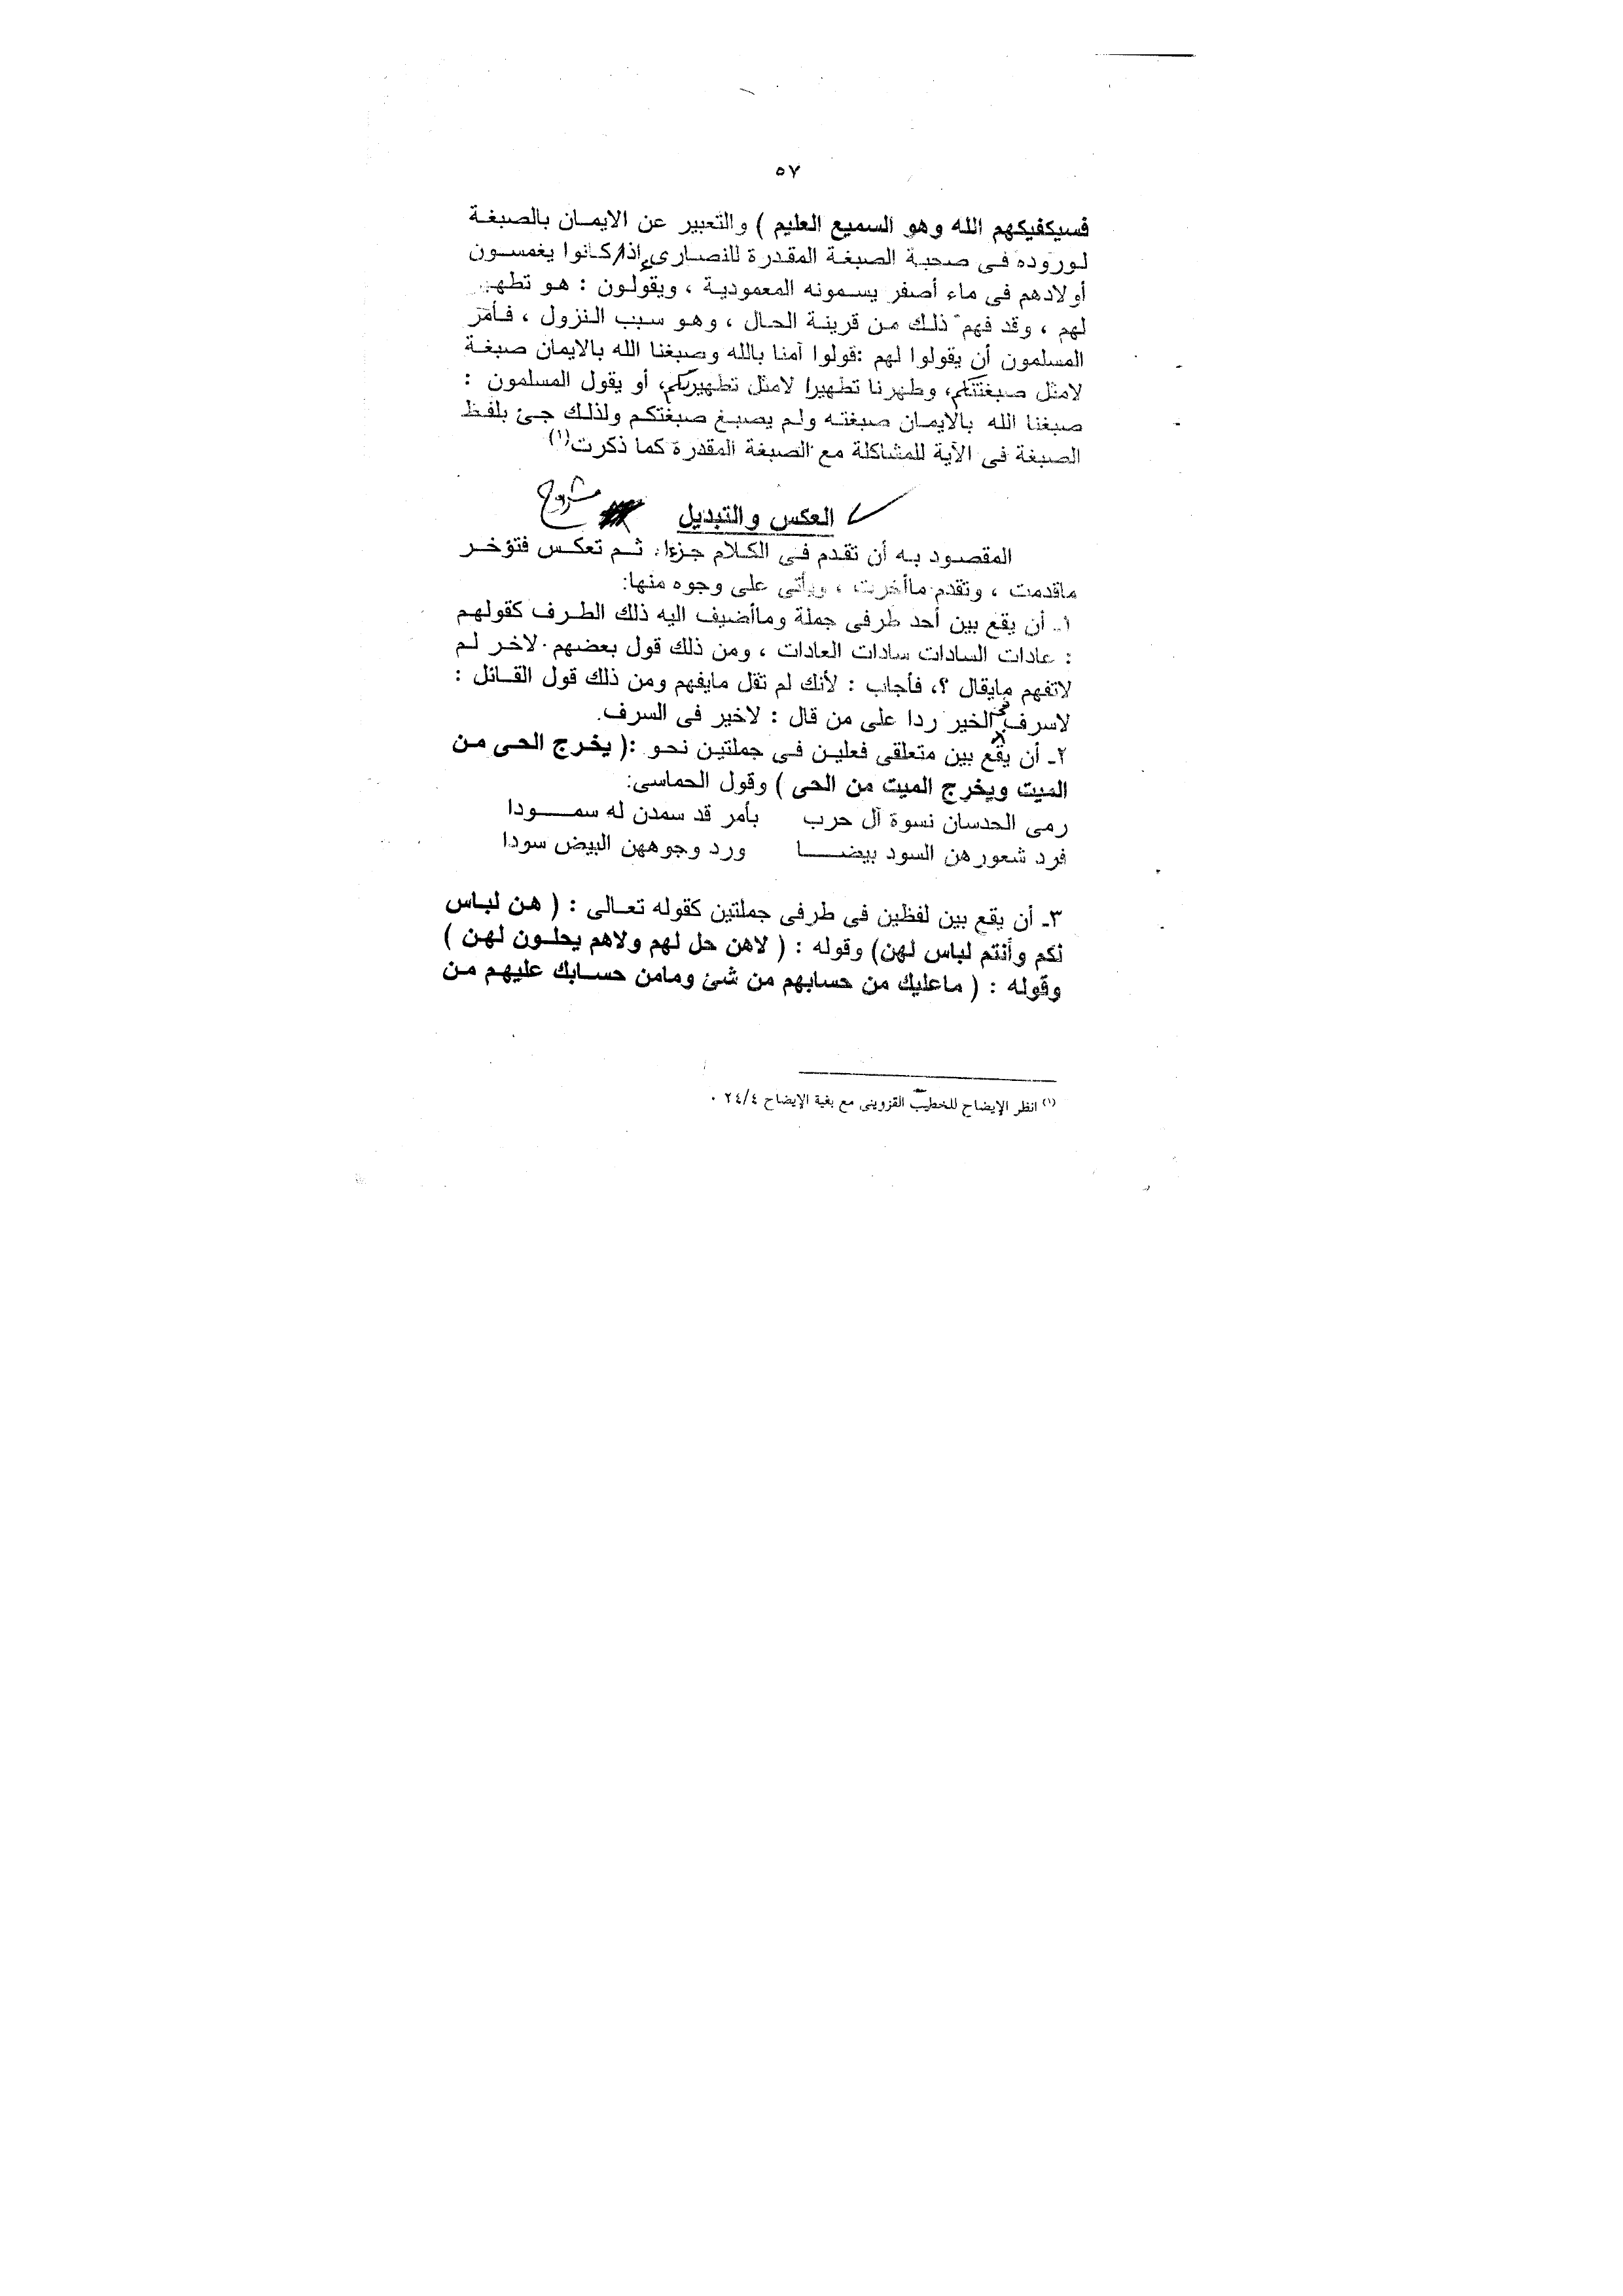 ٥٧
فسيكفيكهم الله وهو السميع العليم ) والتعبير عن الايمان بالصبغة
لوروده فى صحبة الصبغة المقدرة للنصارى، إذا/كانوا يغمسون
أولادهم فى ماء أصفر يسمونه المعمودية ، ويقولون : هو تطهير
لهم ، وقد فهم ذلك من قرينة الحال ، وهو سبب النزول ، فأمر
المسلمون أن يقولوا لهم :قولوا آمنا بالله وصبغنا الله بالايمان صبغة
لامثل صبغتكم، وطهرنا تطهيرا لامثل تطهيركم، أو يقول المسلمون :
صبغنا الله بالايمان صبغته ولم يصبغ صبغتكم ولذلك جئ بلفظ
الصبغة فى الآية للمشاكلة مع الصبغة المقدرة كما ذكرت(١)
العكس والتبديل مشروح
المقصود به أن تقدم فى الكلام جزءا، ثم تعكس فتؤخر
ماقدمت ، وتقدم ماأخرت ، ويأتى على وجوه منها:
١- أن يقع بين أحد طرفى جملة وماأضيف اليه ذلك الطرف كقولهم
: عادات السادات سادات العادات ، ومن ذلك قول بعضهم لاخر لم
لاتفهم مايقال ؟، فأجاب : لأنك لم تقل مايفهم ومن ذلك قول القائل :
لاسرف فى الخير ردا على من قال : لاخير فى السرف.
٢- أن يقع بين متعلقى فعلين فى جملتين نحو :( يخرج الحى من
الميت ويخرج الميت من الحى ) وقول الحماسى:
رمى الحدسان نسوة آل حرب بأمر قد سمدن له سمودا
فرد شعورهن السود بيضا ورد وجوههن البيض سودا
٣- أن يقع بين لفظين فى طرفى جملتين كقوله تعالى : ( هن لباس
لكم وأنتم لباس لهن) وقوله : ( لاهن حل لهم ولاهم يحلون لهن )
وقوله : ( ماعليك من حسابهم من شئ ومامن حسابك عليهم من
(١) انظر الإيضاح للخطيب القزوينى مع بغية الإيضاح ٢٤/٤ .